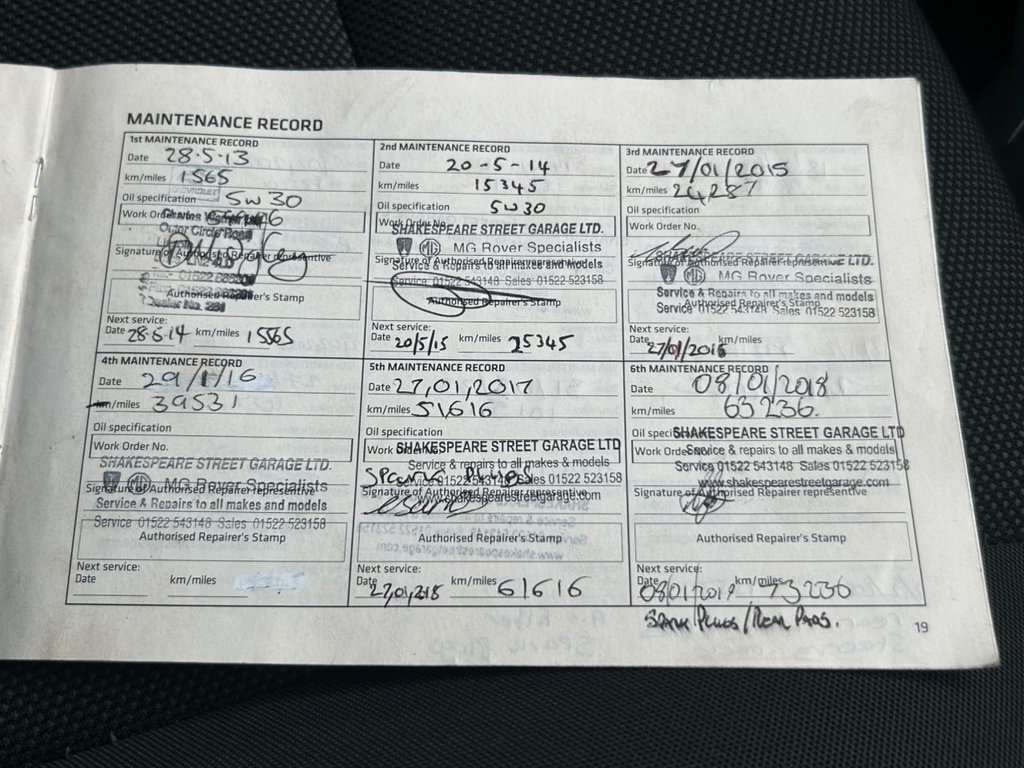 MAINTENANCE RECORD
1st MAINTENANCE RECORD
Date 28·5·13
km/miles 1565
Oil specification 5W30
CHEVROLET
Work Order No.
Outer Circle Road
Signature of Authorised Repairer representative
01522
Authorised Repairer's Stamp
Dealer No.
Next service:
Date 28·5·14 km/miles 15565
2nd MAINTENANCE RECORD
Date 20-5-14
km/miles 15345
Oil specification 5W30
Work Order No.
SHAKESPEARE STREET GARAGE LTD.
MG MG Rover Specialists
Signature of Authorised Repairer representative
Service & Repairs to all makes and models
Service 01522 543148 Sales 01522 523158
Authorised Repairer's Stamp
Next service:
Date 20/5/15 km/miles 25345
3rd MAINTENANCE RECORD
Date 27/01/2015
km/miles 24287
Oil specification
Work Order No.
SHAKESPEARE STREET GARAGE LTD.
Signature of Authorised Repairer representative
MG MG Rover Specialists
Service & Repairs to all makes and models
Service 01522 543148 Sales 01522 523158
Authorised Repairer's Stamp
Next service:
Date 27/01/2016 km/miles
4th MAINTENANCE RECORD
Date 29/1/16
km/miles 39531
Oil specification
Work Order No.
SHAKESPEARE STREET GARAGE LTD.
MG MG Rover Specialists
Signature of Authorised Repairer representative
Service & Repairs to all makes and models
Service 01522 543148 Sales 01522 523158
Authorised Repairer's Stamp
Next service:
Date km/miles
5th MAINTENANCE RECORD
Date 27,01,2017
km/miles 51616
Oil specification
Work Order No.
SHAKESPEARE STREET GARAGE LTD
Service & repairs to all makes & models
Service 01522 543148 Sales 01522 523158
Signature of Authorised Repairer representative
www.shakespearestreetgarage.com
Authorised Repairer's Stamp
Next service:
Date 27,01,218 km/miles 61616
6th MAINTENANCE RECORD
Date 08/01/2018
km/miles 63236.
Oil specification
SHAKESPEARE STREET GARAGE LTD
Work Order No.
Service & repairs to all makes & models
Service 01522 543148 Sales 01522 523158
www.shakespearestreetgarage.com
Signature of Authorised Repairer representative
Authorised Repairer's Stamp
Next service:
Date 08/01/2019 km/miles 73236
SPARK PLUGS/REAR PADS.
19